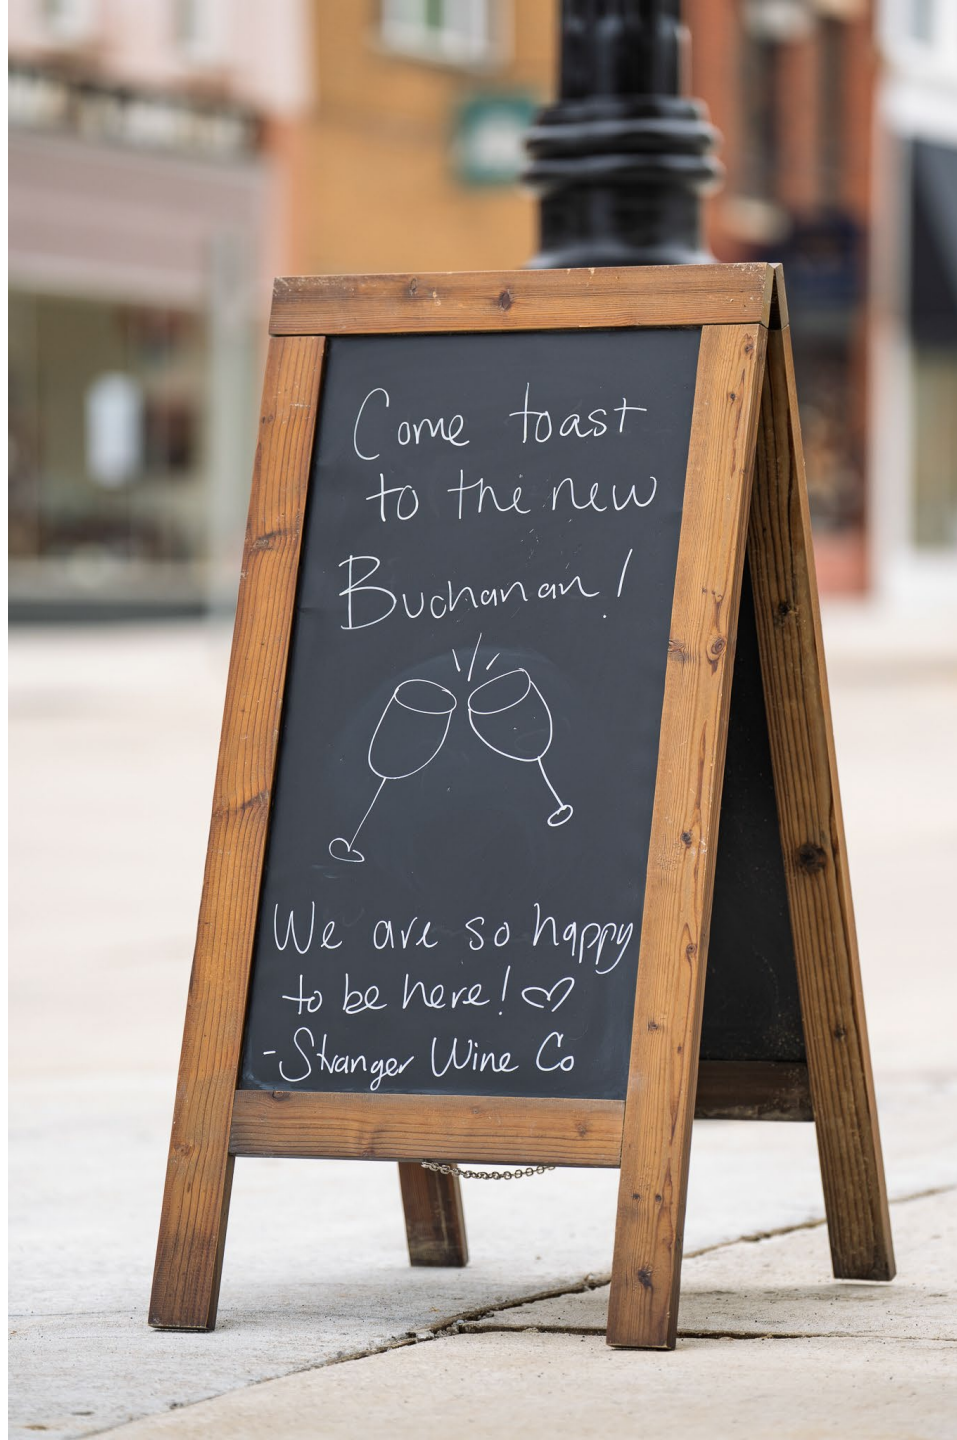 Come toast
to the new
Buchanan!
We are so happy
to be here! ♡
-Stranger Wine Co